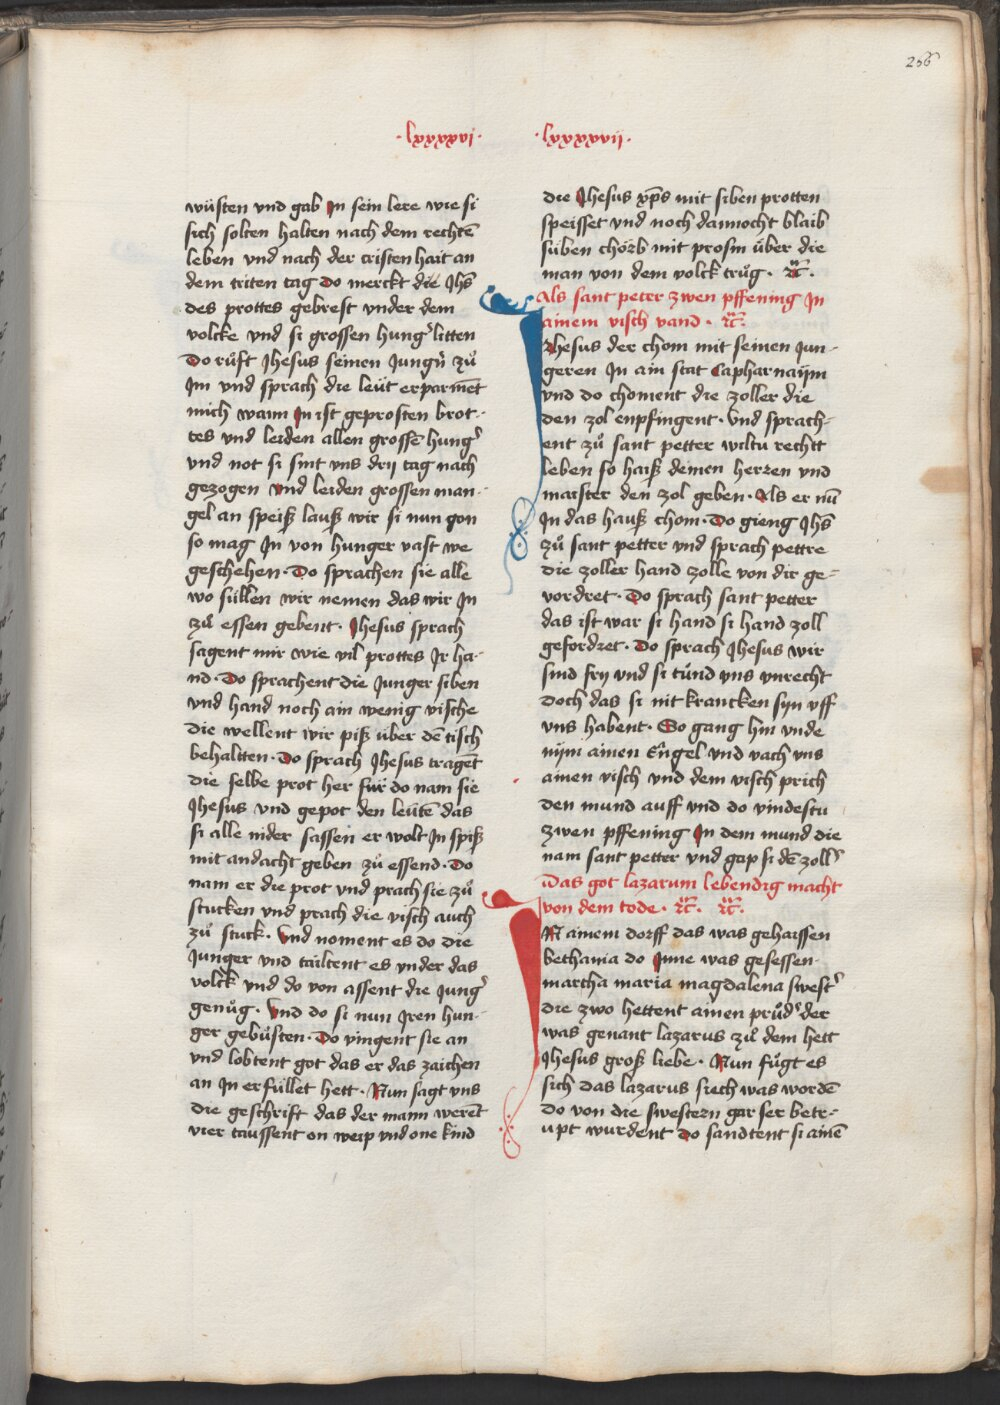 256
·lxxxxvi·
·lxxxxvii·
wüsten vnd gab Jn sein lere wie si
sich solten halten nach dem rechtē
leben vnd nach der cristen hait an
dem triten tag Do merckt die Jhs̄
des prottes gebrest vnder dem
volcke vnd si grossen hung᾽ litten
Do růft Jhesus seinen Jungn̄ zů
Jm vnd sprach die leüt erparmēt
mich wann Jn ist geprosten brot-
tes vnd leiden allen grossē hung᾽
vnd not si sint vns drij tag nach
gezogen vnd leiden grossen man-
gel an speiß lauß wir si nun gon
so mag Jn von hunger vast we
geschehen· Do sprachen sie alle
wo süllen wir nemen das wir Jn
zů essen gebent· Jhesus sprach
sagent mir wie vil prottes Jr ha-
nd· Do sprachent die Junger siben
vnd hand noch ain wenig vische
die wellent wir piß über dē tisch
behaltten· Do sprach Jhesus tragēt
die selbe prot her für do nam sie
Jhesus vnd gepot den leütē das
si alle nider sassen er wolt Jn spiß
mit andacht geben zů essend· Do
nam er die prot vnd prach sie zů
stucken vnd prach die visch auch
zů stuck· Vnd noment es do die
Junger vnd tailtent es vnder das
volck vnd do von assent die Jung᾽
genůg· Vnd do si nun Jren hun-
ger gebüsten· Do vingent sie an
vnd lobtent got das er das zaichen
an Jn erfüllet hett· Nun sagt vns
die geschrift das der mann werēt
vier taussent on weip vnd one kind
die Jhesus xp̄s mit siben protten
speisset vnd noch dannocht blaib
süben chörb mit prosm über die
man von dem volck trůg· ꝛc̄·
Als sant peter zwen pffening Jn
ainem visch vand· ꝛc̄·
Jhesus der chom mit seinen Jun-
geren Jn ain stat Capharnaijm
vnd do choment die zoller die
den zol enpfingent· Vnd sprach-
ent zů sant petter wiltu rechtt
leben so haiß deinen herren vnd
maister den zol geben· Als er nū
Jn das hauß chom· Do gieng Jhs̄
zů sant petter vnd sprach pettre
die zoller hand zolle von dir ge-
vordret· Do sprach sant petter
das ist war si hand si hand zoll
gefordret· Do sprach Jhesus wir
sind frij vnd si tůnd vns vnrecht
doch das si nit krancken sijn vff
vns habent· So gang hin vnde
nijm ainen Engel vnd vach vns
ainen visch vnd dem visch prich
den mund auff vnd do vindestu
zwen pffening Jn dem mund die
nam sant petter vnd gap si dē zoll᾽
Das got lazarum lebendig macht
von dem tode· ꝛc̄· ꝛc̄·
JN ainem dorff das was gehaissen
bethania do Jnne was gesessen·
martha maria magdalena swest᾽
die zwo hettent ainen průd᾽ der
was genant lazarus zů dem hett
Jhesus groß liebe· Nun fůgt es
sich das lazarus siech was wordē
do von die swestern gar ser betr-
upt wurdent Do sandtent si ainē